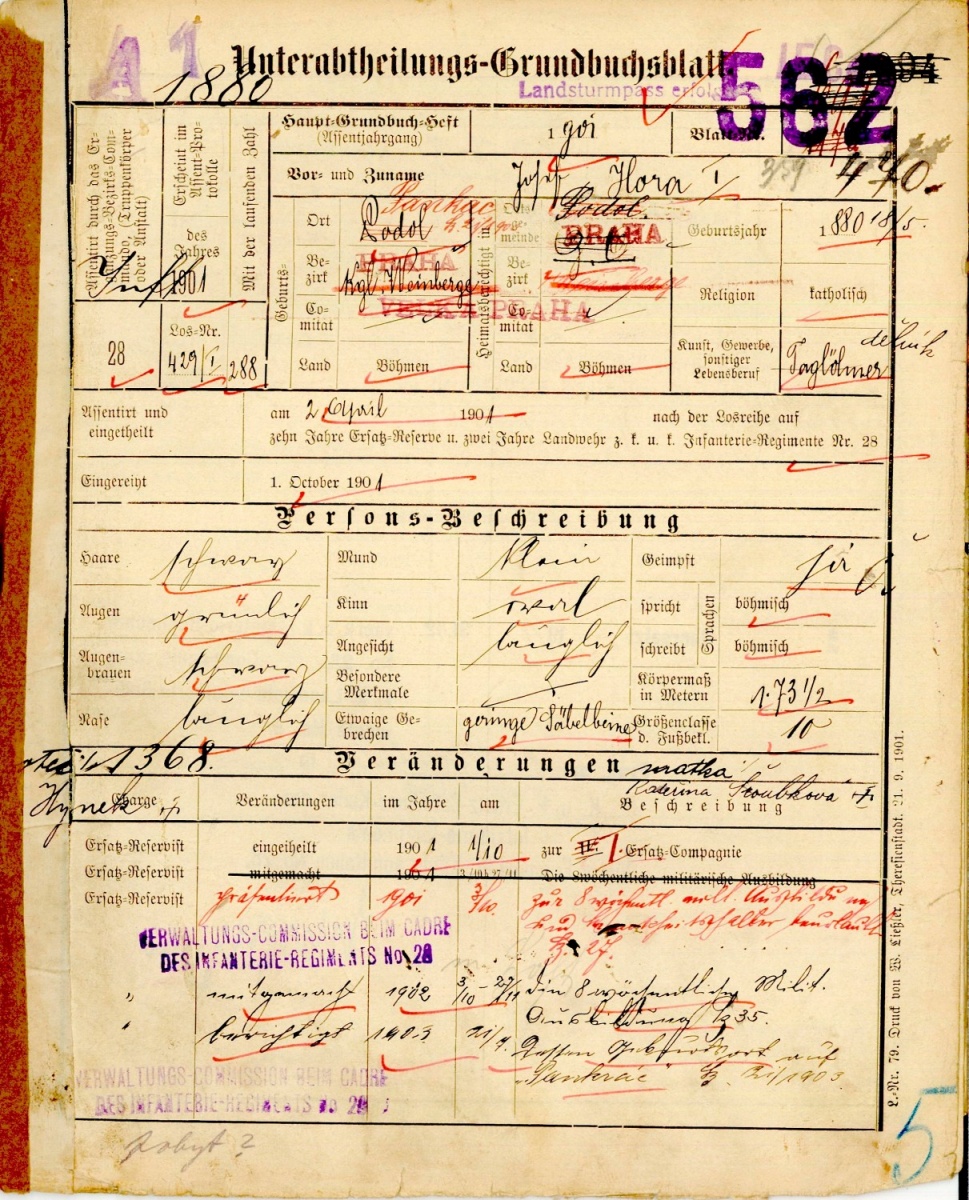 A 1
Unterabtheilungs-Grundbuchsblatt.
1880
Landsturmpass erfolgt
562
Assentirt durch das Ergänzungs-Bezirks-Commando, (Truppenkörper oder Anstalt)
Inft
28
Erscheint im Assent-Protokolle
des Jahres
1901
Los-Nr.
429/I
Mit der laufenden Zahl
288
Haupt-Grundbuch-Heft
(Assentjahrgang)
1901
Blatt-Nr.
440.
Vor- und Zuname
Josef Hora I
Geburts-
Ort
Podol
Pankrác
Bezirk
PRAHA
Kgl. Weinberge
Comitat
VELKÁ PRAHA
Land
Böhmen
Heimatsberechtigt in
Ortsgemeinde
Podol.
PRAHA
Bezirk
Comitat
Land
Böhmen
Geburtsjahr
1880 18/5.
Religion
katholisch
Kunst, Gewerbe, sonstiger Lebensberuf
Taglöhner
dělník
Assentirt und eingetheilt
am 2 April 1901 nach der Losreihe auf
zehn Jahre Ersatz-Reserve u. zwei Jahre Landwehr z. k. u. k. Infanterie-Regimente Nr. 28
Eingereiht
1. October 1901
Persons-Beschreibung
Haare schwarz
Mund klein
Geimpft ja
Augen grünlich
Kinn oval
spricht böhmisch
Sprachen
Angesicht länglich
schreibt böhmisch
Augenbrauen schwarz
Besondere Merkmale
Körpermaß in Metern 1·73 1/2
Nase länglich
Etwaige Gebrechen geringe Säbelbeine
Größenclasse d. Fußbekl. 10
1368.
Veränderungen
matka
Kateřina
Hynek
Charge Veränderungen im Jahre am Beschreibung
Ersatz-Reservist eingetheilt 1901 1/10 zur I. Ersatz-Compagnie
Ersatz-Reservist mitgemacht 1901 Die 8wöchentliche militärische Ausbildung
Ersatz-Reservist präsentirt 1901 3/10. zur 8 wöchentl. milt. Ausbildung
und
27.
VERWALTUNGS-COMMISSION BEIM CADRE
DES INFANTERIE-REGIMENTS No. 28
" mitgemacht 1902 3/10 - 27/11 die 8 wöchentliche Milit.
Ausbildung 35.
" berichtigt 1903 21/4. dessen Geburtsort auf
"Pankrác" 21/1903
VERWALTUNGS-COMMISSION BEIM CADRE
DES INFANTERIE-REGIMENTS No 28
pobyt ?
L.-Nr. 79. Druck von W. Ließler, Theresienstadt. 21. 9. 1901.
5